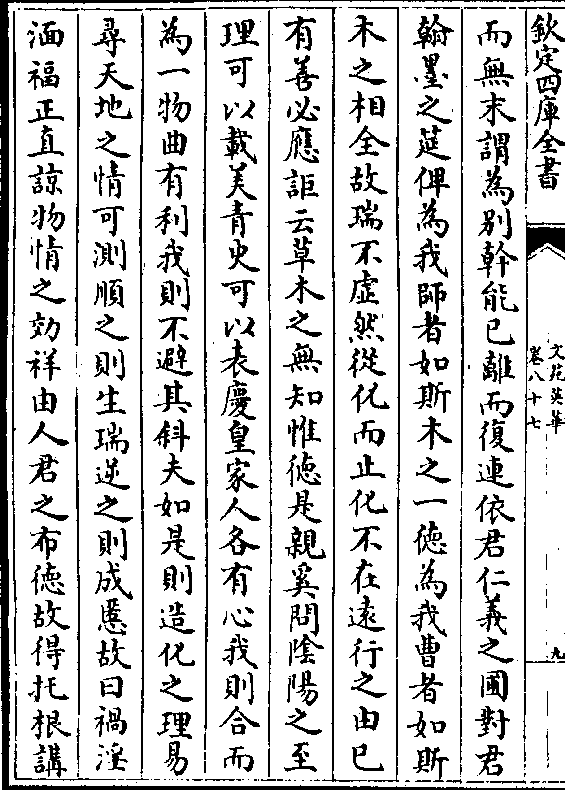 欽定四庫全書
文苑英華
卷八十七
九
而無末謂為別幹能已離而復連依君仁義之圃對君
翰墨之筵俾為我師者如斯木之一徳為我曹者如斯
木之相全故瑞不虛然從化而止化不在遠行之由已
有善必應詎云草木之無知惟徳是親奚問陰陽之至
理可以載美青史可以表慶皇家人各有心我則合而
為一物曲有利我則不避其斜夫如是則造化之理易
尋天地之情可測順之則生瑞逆之則成慝故曰禍淫
湎福正直諒物情之効祥由人君之布徳故得托根講